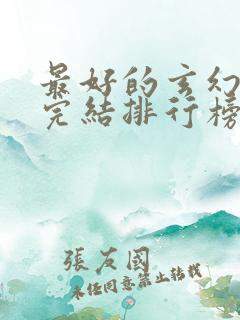 最好的玄幻
完結排行榜
張友國
未经同意禁止转载